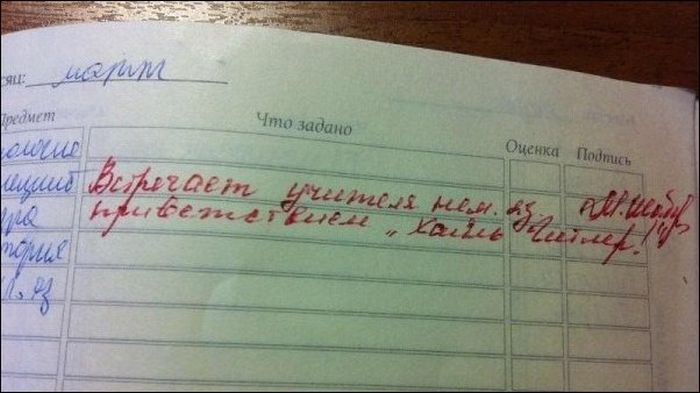 сяц: март
Предмет Что задано Оценка Подпись
ологие
Встречает учителя нем. яз
приветствием „Хайль Гитлер!"
тория
яз